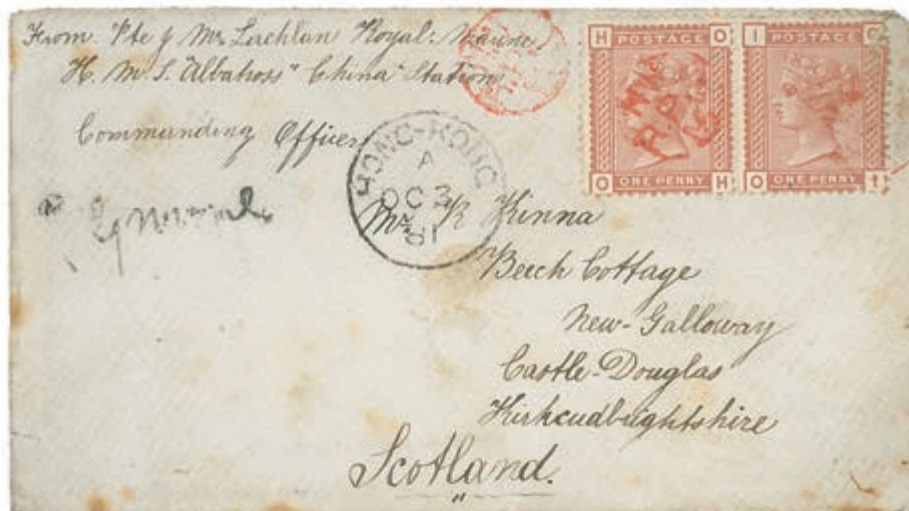 From Pte J McLachlan Royal: Marine.
H. M. S. "Albatross" China Station
Commanding Officer
HONG-KONG
A
OC 3
81
H POSTAGE O
O ONE PENNY H
I POSTAGE O
O ONE PENNY I
Mr R Kinna
Beech Cottage
New-Galloway
Castle-Douglas
Kirkcudbrightshire
Scotland.